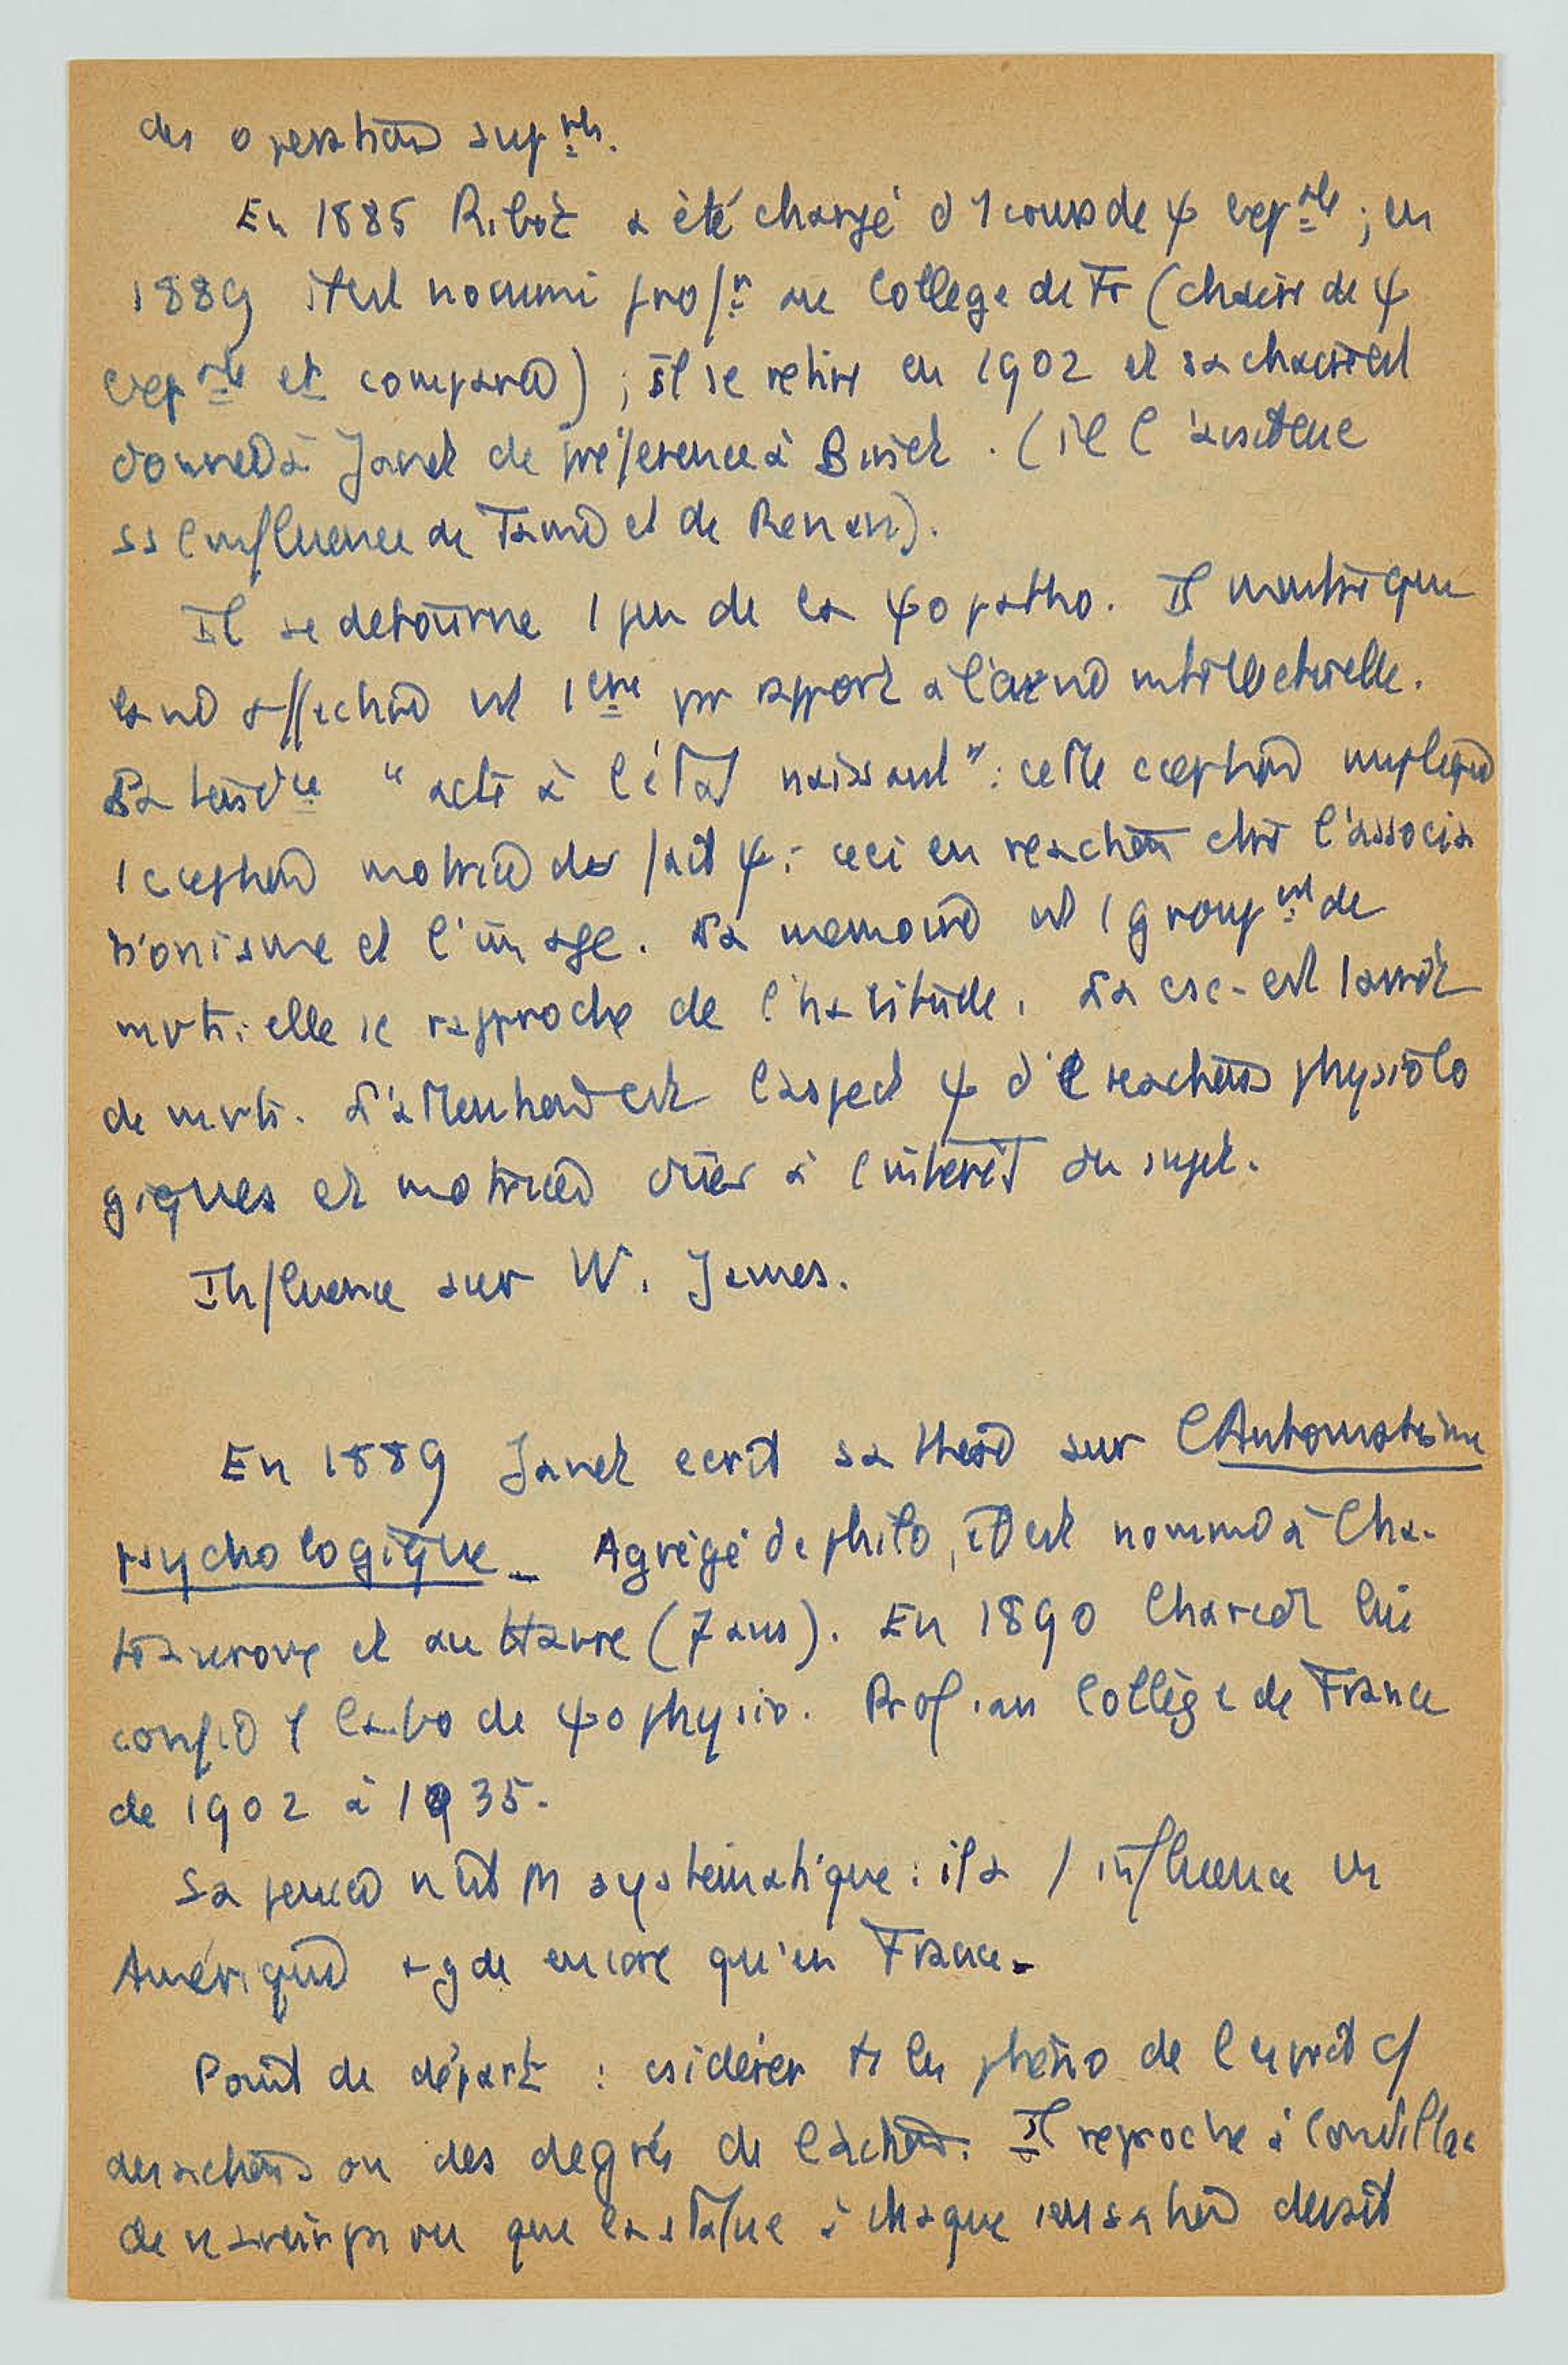 des operations sup<sup>res</sup>.
En 1885 Ribot a été chargé d'1 cours de ψ exp<sup>ale</sup> ; en
1889 il est nommé prof<sup>r</sup> au College de Fr (chaire de ψ
exp<sup>ale</sup> et comparée) ; il se retire en 1902 et sa chaire est
donnée à Janet de préference à Binet. (il
ss l'influence de Taine et de Renan).
Il se detourne 1 peu de la ψo patho. Il montre que
affective est 1ere pr rapport à intellectuelle.
La tend<sup>ce</sup> "acte à l'état naissant" : cette cception implique
1 cception motrice des fait ψ : ceci en reaction ctre l'associa
tionisme et l'image. La memoire est 1 group<sup>mt</sup> de
mvts : elle se rapproche de l'habitude. La csc- est 1 arrêt
de mvts. L'attention est l'aspect ψ d' reactions physiolo
giques et motrices à l'intérêt du sujet.
Influence sur W. James.
En 1889 Janet ecrit sa these sur l'Automatisme
psychologique _ Agrégé de philo, il est nommé à Cha-
teauroux et au Havre (7 ans). En 1890 Charcot lui
confie 1 labo de ψophysio. Prof. au Collège de France
de 1902 à 1935.
Sa pensée n'est pas systématique : il a 1 influence en
Amérique + gde encore qu'en France.
Point de départ : csidérer ts les phéno de l'esprit c/
des actions ou des degrés de l'action. Il reproche à Condillac
de n'avoir pas vu que la statue à chaque sensation devait